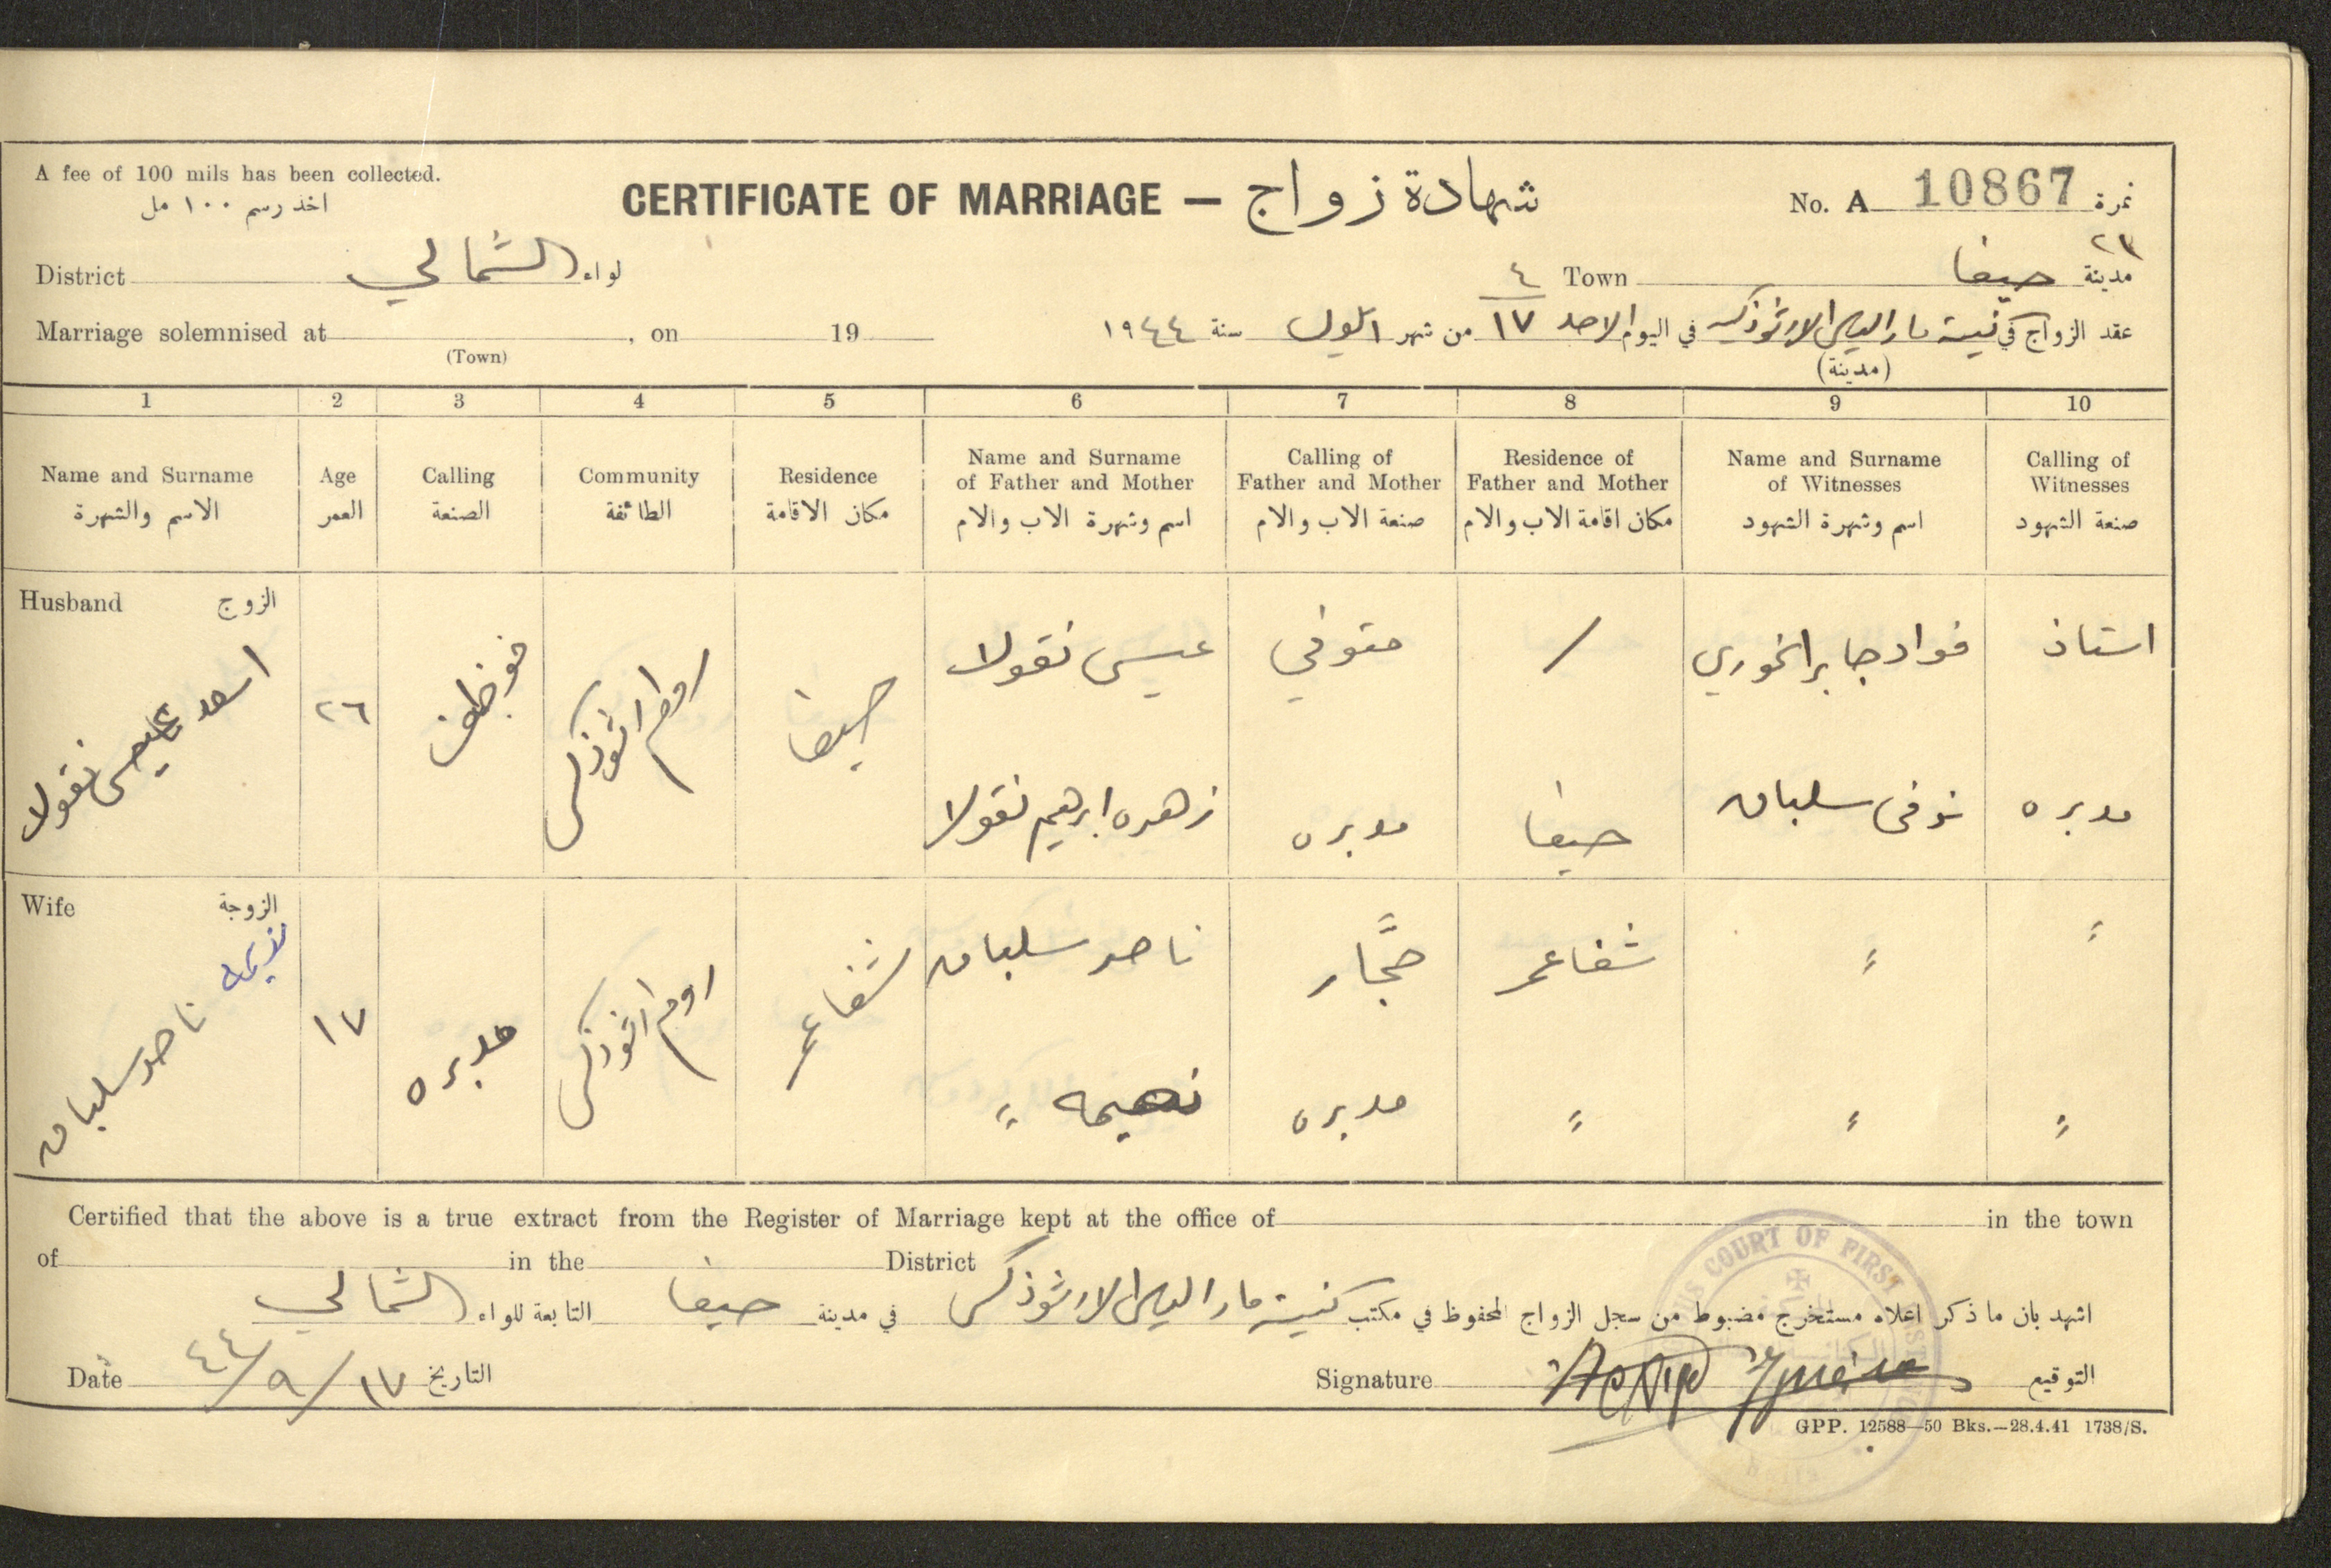 A fee of 100 mils has been collected.
اخذ رسم ١٠٠ مل
CERTIFICATE OF MARRIAGE — شهادة زواج
No. A 10867 نمرة
٢٣
District الشمالي لواء
٤ Town حيفا مدينة
Marriage solemnised at , on 19
(Town)
عقد الزواج في كنيسة مار الياس الارثوذكسية في اليوم الاحد ١٧ من شهر ايلول سنة ١٩٤٤
(مدينة)
1 2 3 4 5 6 7 8 9 10
Name and Surname الاسم والشهرة
Age العمر
Calling الصنعة
Community الطائفة
Residence مكان الاقامة
Name and Surname of Father and Mother اسم وشهرة الاب والام
Calling of Father and Mother صنعة الاب والام
Residence of Father and Mother مكان اقامة الاب والام
Name and Surname of Witnesses اسم وشهرة الشهود
Calling of Witnesses صنعة الشهود
Husband الزوج
اسعد عيسى نقولا
٢٦
موظف
روم ارثوذكس
حيفا
عيسى نقولا
متوفي
/
فواد جابر الخوري
استاذ
زهره ابرهيم نقولا
مدبره
حيفا
سلبان
مدبره
Wife الزوجة
نديمه ناصر سلبان
١٧
مدبره
روم ارثوذكس
شفاعمر
ناصر سلبان
حجَّار
شفاعمر
〃
〃
〃
مدبره
〃
〃
〃
Certified that the above is a true extract from the Register of Marriage kept at the office of in the town
of in the District
اشهد بان ما ذكر اعلاه مستخرج مضبوط من سجل الزواج المحفوظ في مكتب كنيسة مار الياس الارثوذكس في مدينة حيفا التابعة للواء الشمالي
Date ١٧/٩/٤٤ التاريخ
Signature التوقيع
COURT OF FIRST
GPP. 12588—50 Bks.—28.4.41 1738/S.